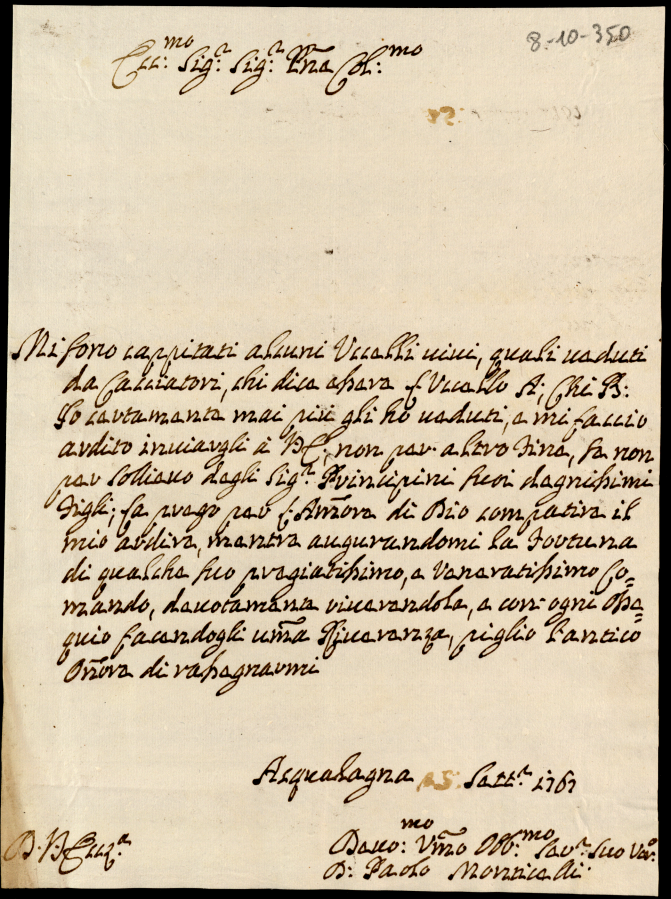 8-10-350
Ecc:mo Sigr: Sigr: Pne Col:mo
Mi sono cappitati alcuni Uccelli vivi, quali veduti
da Cacciatori, chi dice essere Uccello A; Chi B:
Io certamente mai più gli ho veduti, e mi faccio
ardito inviargli à V E: non per altro fine, se non
per sollievo degli Sigri Principini suoi degnissimi
Figli; La prego per l'Amore di Dio compatire il
mio ardire, mentre augurandomi la Fortuna
di qualche suo pregiatissimo, e Veneratissimo Co=
mando, devotamente riverendola, e con ogni Osse=
quio facendogli umã Riverenza, piglio l'antico
Onore di rassegnarmi
Acqualagna 25: Sett:e 1767
D: V: Ecc:a
Devo:mo Umo Obb:mo Ser:e Suo Ver:o
D: Paolo Monticelli